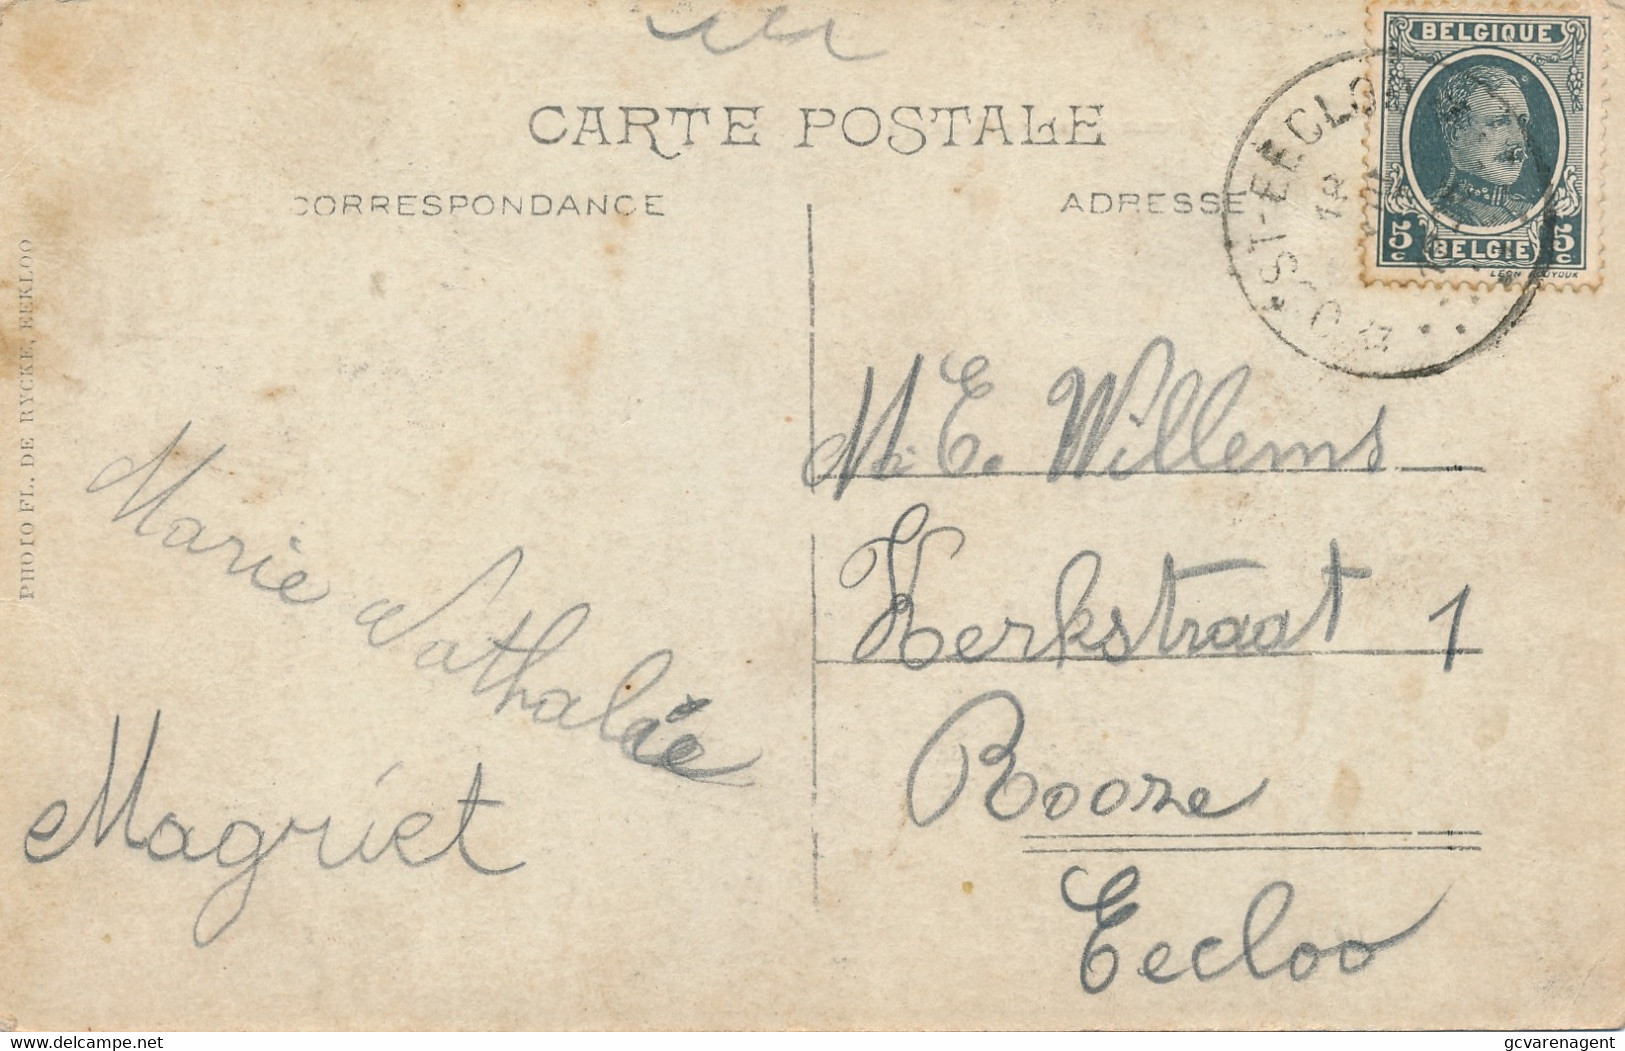 CARTE POSTALE
CORRESPONDANCE
ADRESSE
BELGIQUE
5c BELGIE 5c
ST-EECLOO
18
PHOTO FL. DE RYCKE, EEKLOO
Marie Nathalie
Magriet
M. E. Willems
Kerkstraat 1
Boone
Eecloo
delcampe.net
gcvarenagent